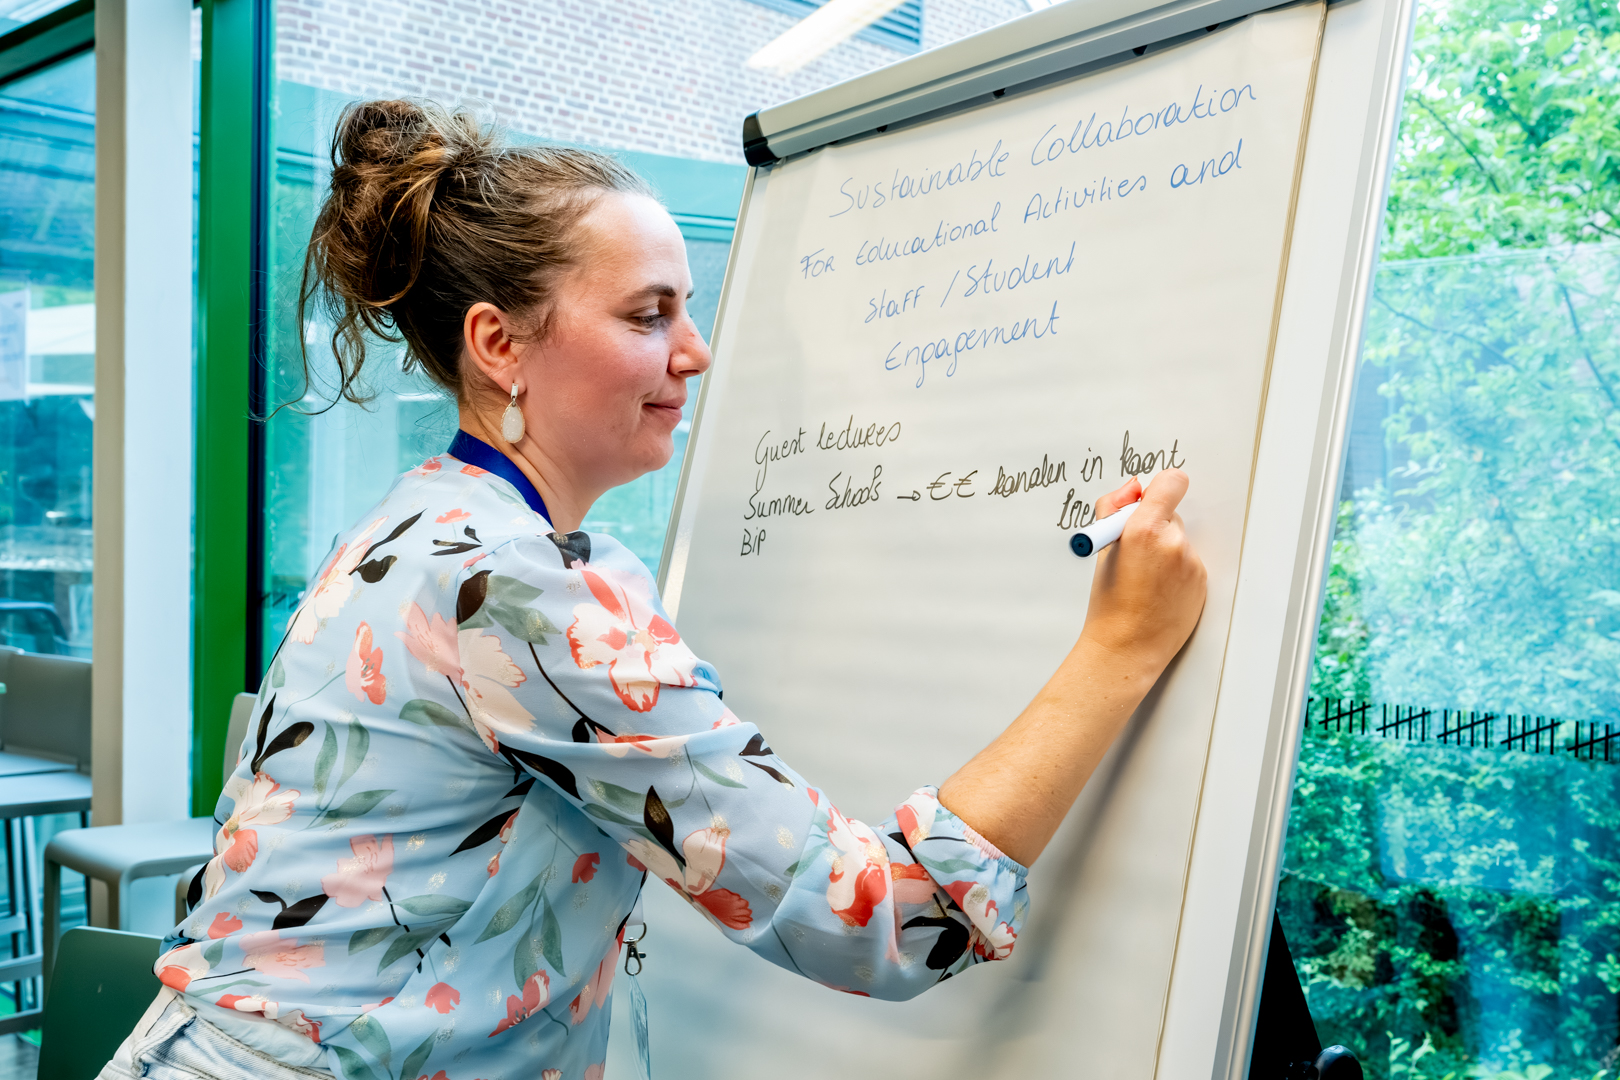 Sustainable Collaboration
For Educational Activities and
Staff / Student
Engagement
Guest lectures
Summer Schools → €€ kanalen in kaart
BiP